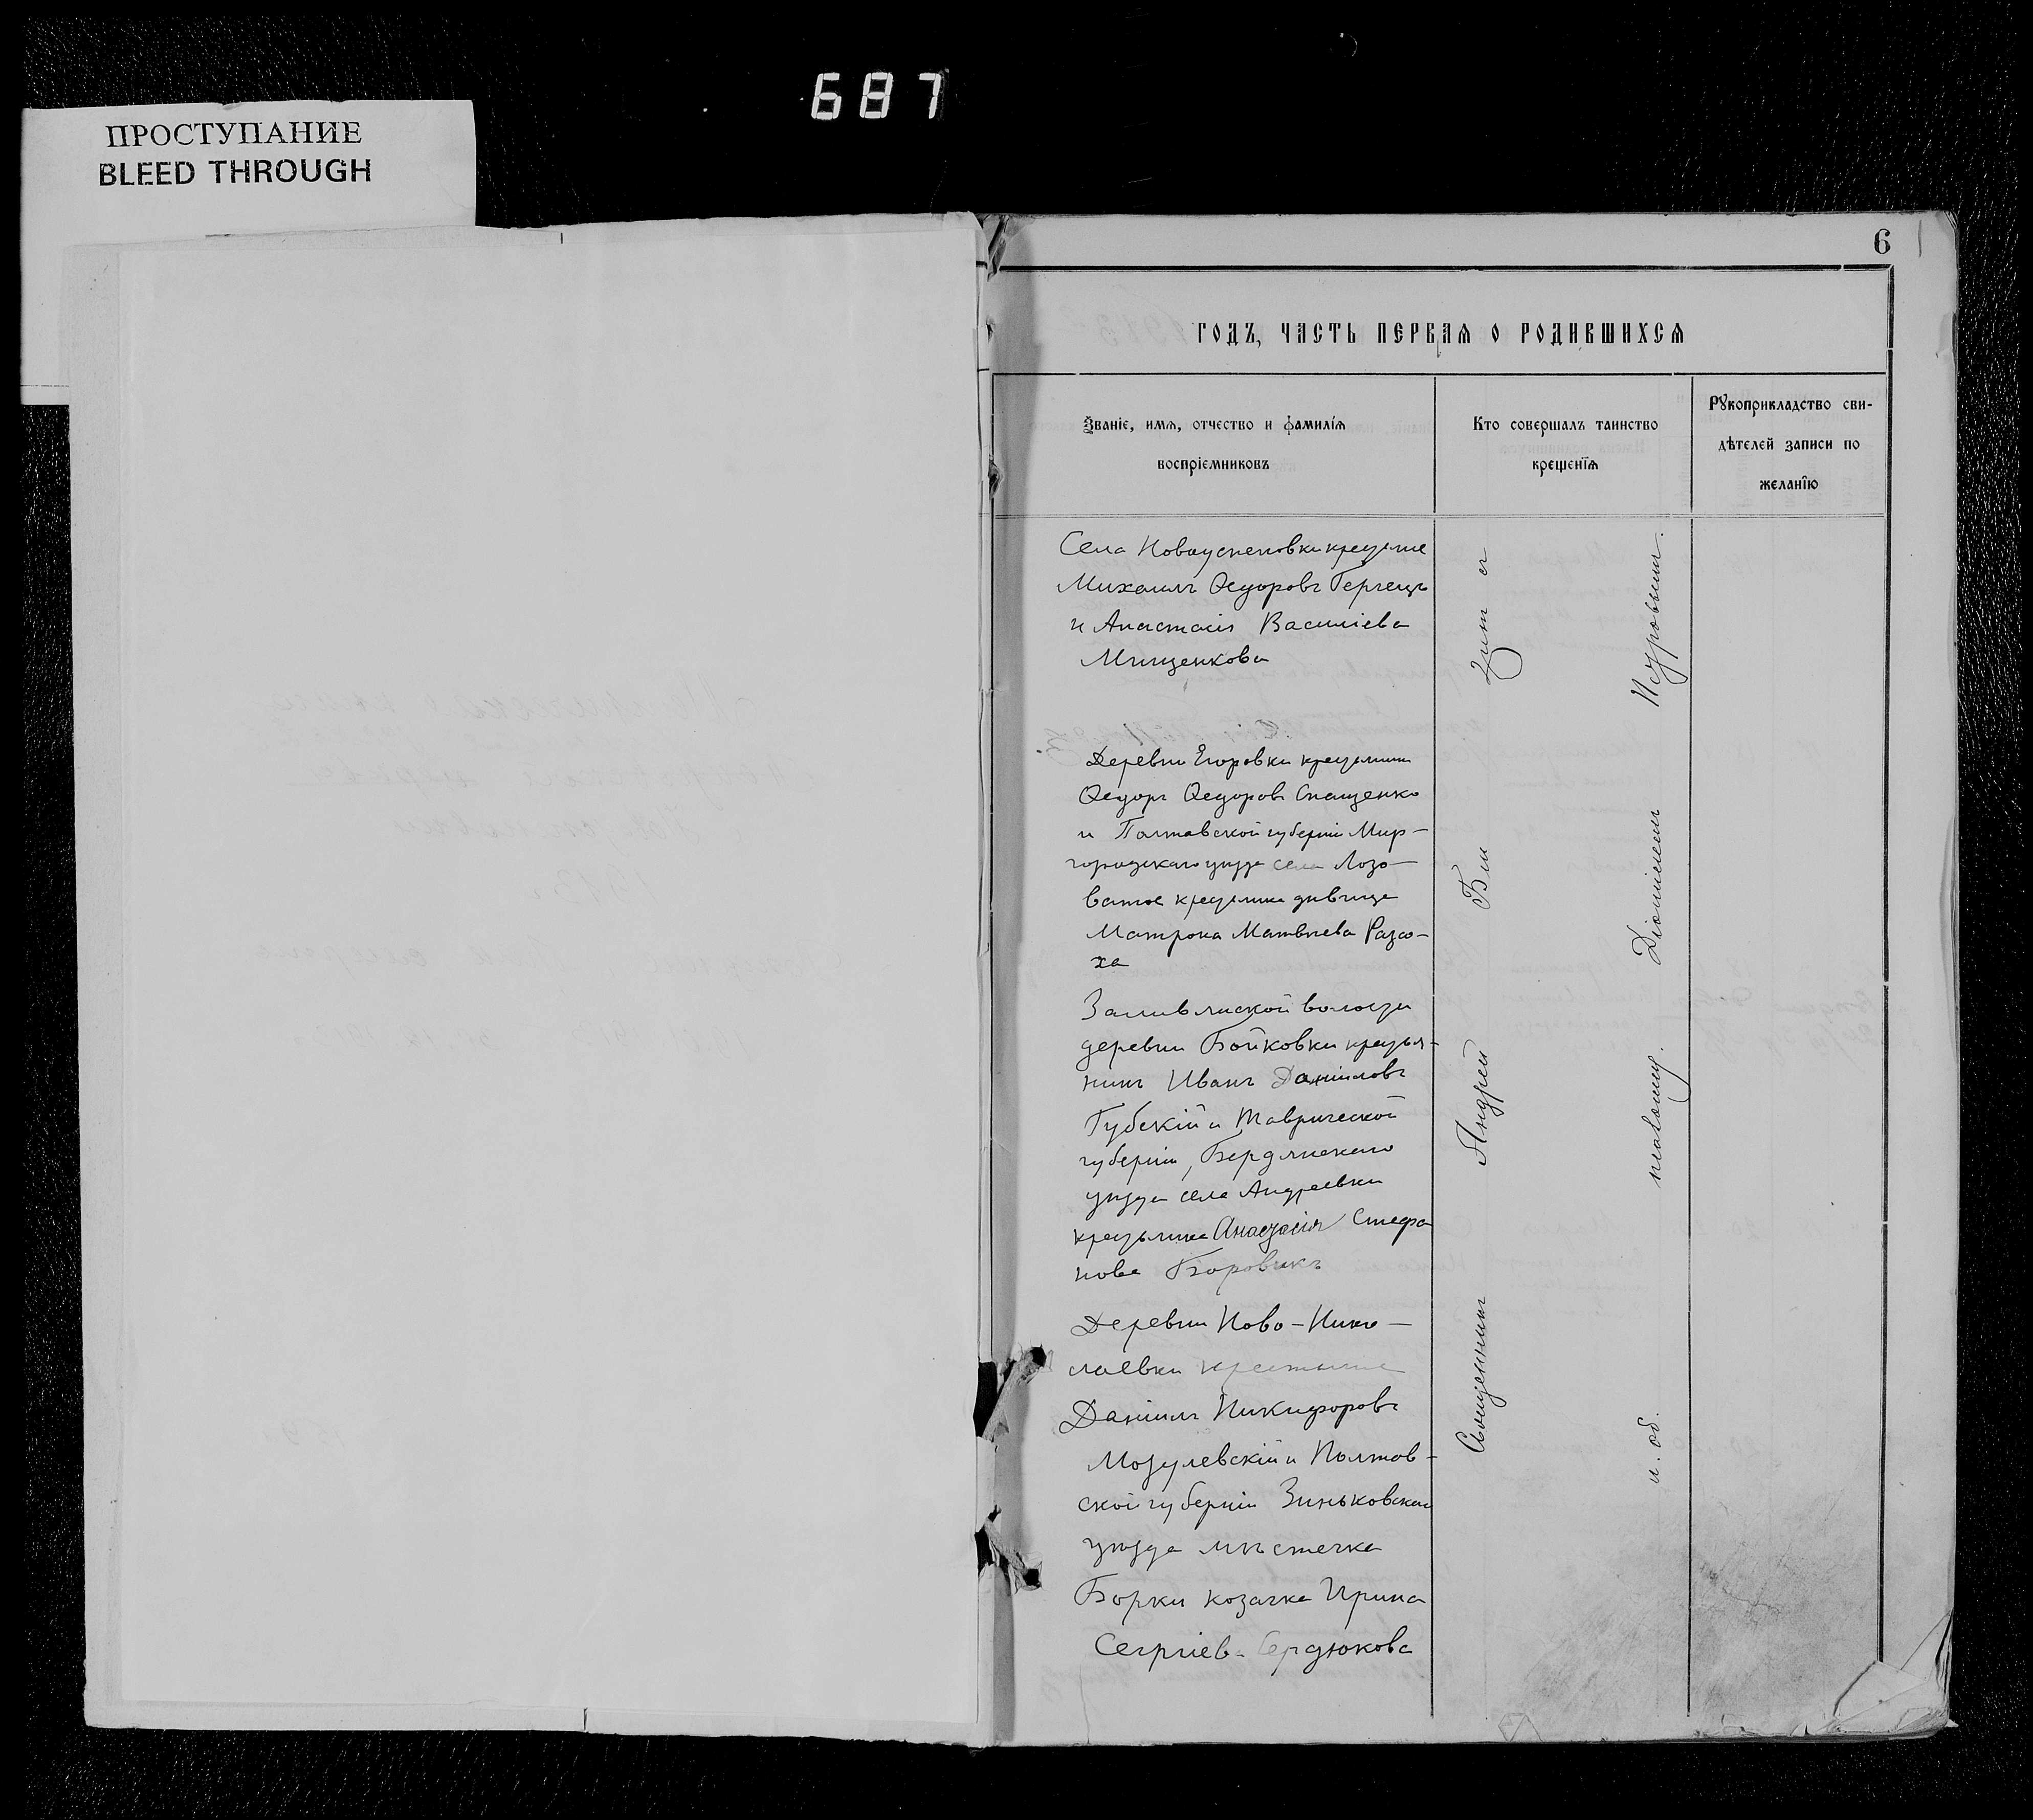 687
ПРОСТУПАНИЕ
BLEED THROUGH
6
ГОДЪ, ЧАСТЬ ПЕРВАѦ О РОДИВШИХСѦ
Званіе, имѧ, отчество и фамиліѧ
воспріемниковъ
Кто совершалъ таинство
крещеніѧ
Рꙋкоприкладство сви-
дѣтелей записи по
желанію
Села Новоуспеновки крестьяне
Михаилъ Ѳедоровъ
и Анастасія Василіева
Мищенкова
Деревни Егоровки крестьянин
Ѳедоръ Ѳедоровъ Спащенко
и Полтавской губерніи Мир-
городскаго уѣзда села Лозо-
ватое крестьянка дѣвица
Матрона Матвѣева Разсо-
ха
волости
деревни Бойковки крестья-
нинъ Иванъ Даніиловъ
Губскій и Таврической
губерніи, Бердянскаго
уѣзда села Андреевки
крестьянка Анастасія Стефа
нова Боровикъ
Деревни Ново-Нико-
лаевки крестьяне
Даніилъ Никифоровъ
Мозулевскій и Полтав-
ской губерніи Зиньковскаго
уѣзда мѣстечка
Борки козачка Ирина
Сергіева Сердюкова
Священникъ Андрей
и. об. псаломщ. Діонисій